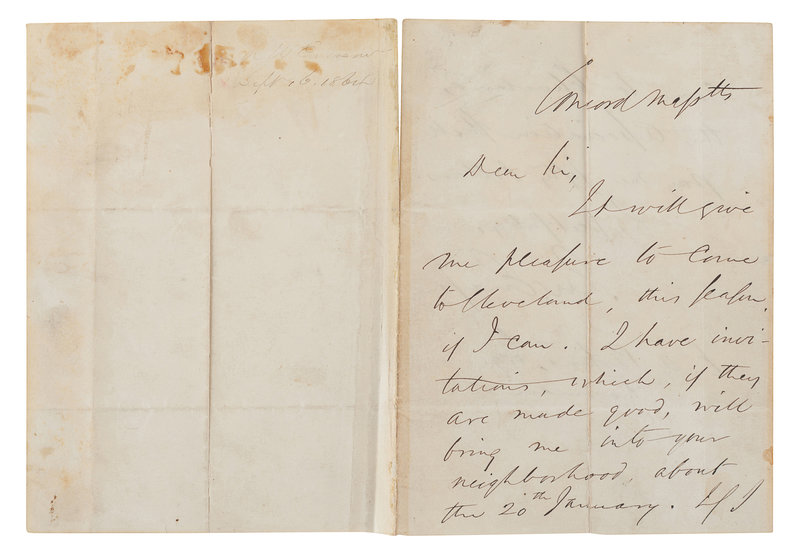 Sept 16. 1864
Concord Masstts
Dear Sir,
It will give
me pleasure to come
to Cleveland, this season,
if I can. I have invi-
tations, which, if they
are made good, will
bring me into your
neighborhood, about
the 20th January. If I